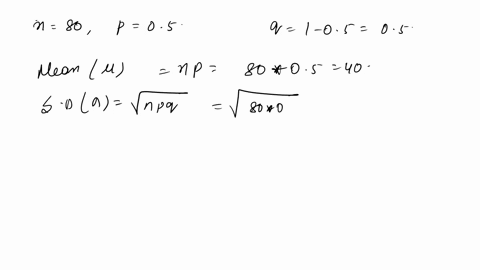 n = 80, p = 0.5 q = 1 - 0.5 = 0.5
Mean (μ) = np = 80 * 0.5 = 40
S.D (σ) = √npq = √80*0